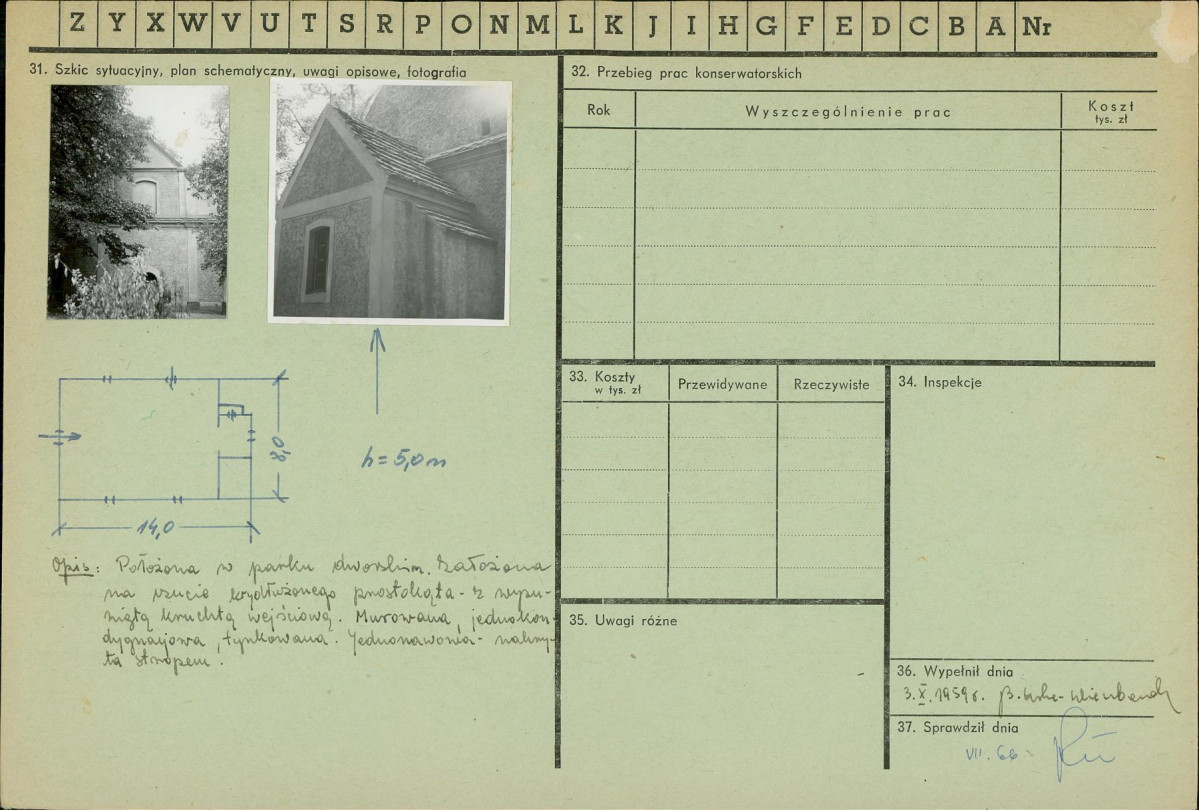 Z Y X W V U T S R P O N M L K J I H G F E D C B A Nr
31. Szkic sytuacyjny, plan schematyczny, uwagi opisowe, fotografia
8,0
14,0
h = 5,0 m
Opis: Położona w parku dworskim. Założona
na rzucie wydłużonego prostokąta - z wysu-
niętą kruchtą wejściową. Murowana, jednokon-
dygnacyjowa, tynkowana. Jednonawowa - nakry-
ta stropem.
32. Przebieg prac konserwatorskich
Rok
Wyszczególnienie prac
Koszt
tys. zł
33. Koszty
w tys. zł
Przewidywane
Rzeczywiste
34. Inspekcje
35. Uwagi różne
36. Wypełnił dnia
3.X.1959 r. B.
37. Sprawdził dnia
VII. 66